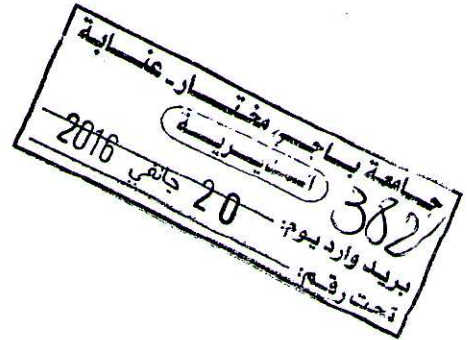 جامعة باجي مختار - عنابة
المديرية
بريد وارد يوم: 20 جانفي 2016
تحت رقم: 382